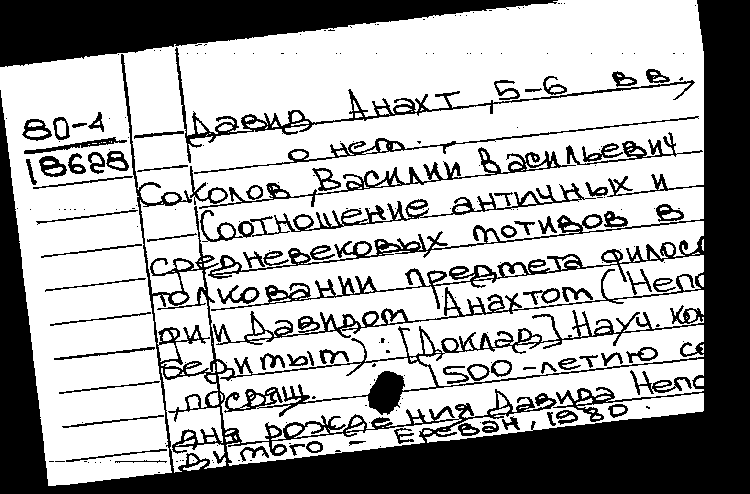 80-4
18628
Давид Анахт, 5-6 вв.,
о нем.
Соколов, Василий Васильевич
Соотношение античных и
средневековых мотивов в
толковании предмета филос
фии Давидом Анахтом (Непо
бедимым): [Доклад]. Науч. кон
, посвящ. 1500-летию со
дня рождения Давида Непо
димого. - Ереван, 1980.